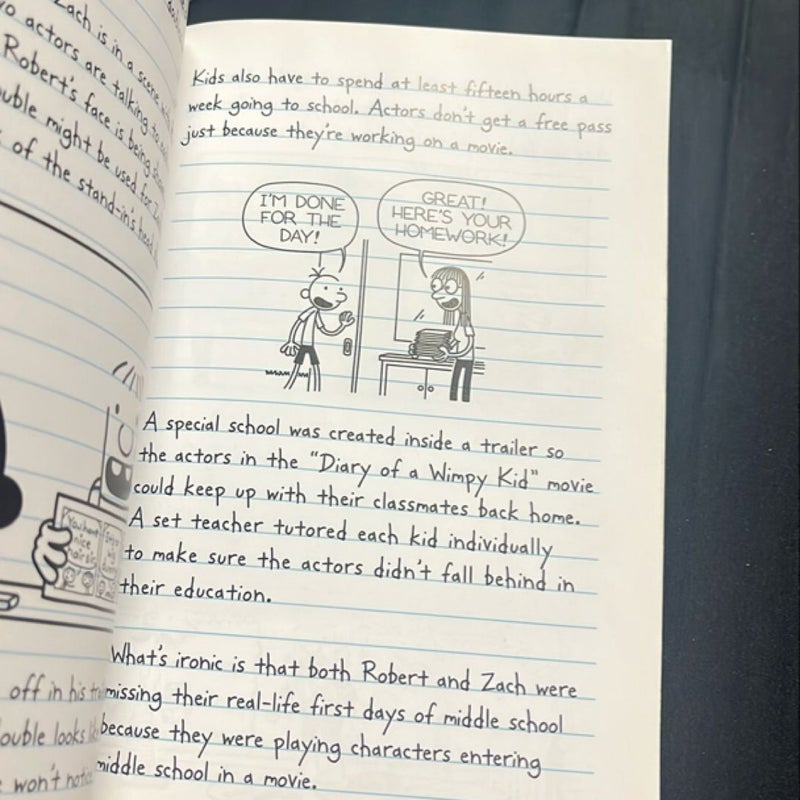 Zach is in a scene
o actors are talking to
Robert's face is being
uble might be used for
of the stand-in's head
You have
nice
hair
off in his
ouble looks
won't
Kids also have to spend at least fifteen hours a
week going to school. Actors don't get a free pass
just because they're working on a movie.
I'M DONE
FOR THE
DAY!
GREAT!
HERE'S YOUR
HOMEWORK!
A special school was created inside a trailer so
the actors in the "Diary of a Wimpy Kid" movie
could keep up with their classmates back home.
A set teacher tutored each kid individually
to make sure the actors didn't fall behind in
their education.
What's ironic is that both Robert and Zach were
missing their real-life first days of middle school
because they were playing characters entering
middle school in a movie.